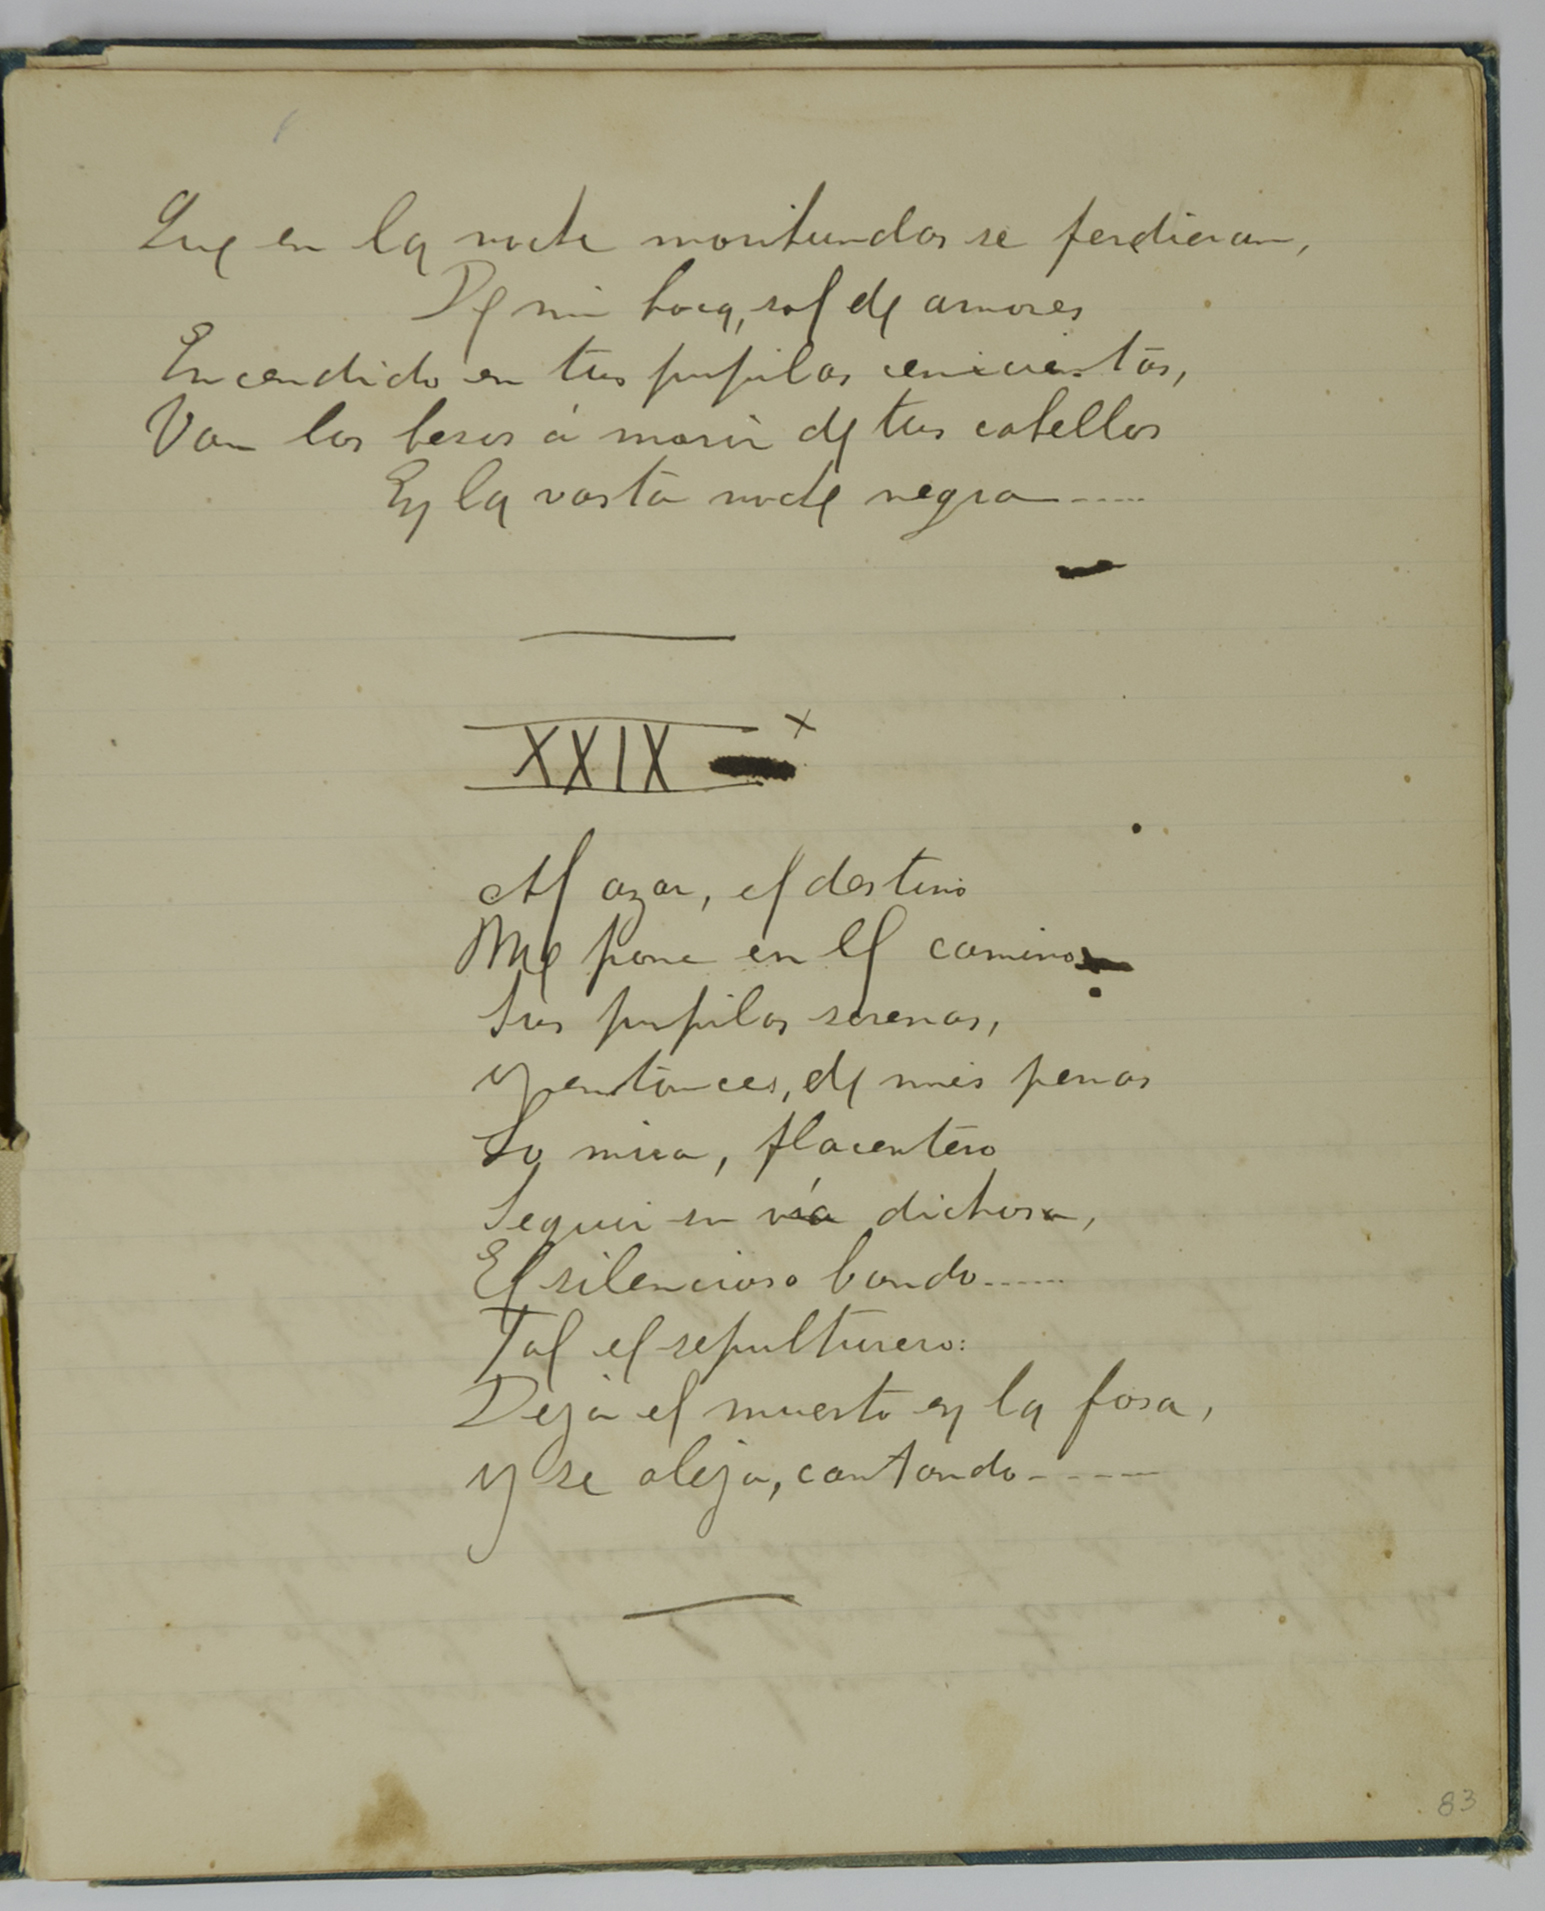 Que en la noche moribundos se perdieran,
De mi boca, sol de amores
Encendido en tus pupilas cenicientas,
Van los besos á morir de tus cabellos
En la vasta noche negra.....
XXIX x
Al azar, el destino
Me pone en el camino
Sus pupilas serenas,
Y entonces, de mis penas
Lo mira, placentero
Seguir su vía dichosa,
El silencioso bando......
Tal el sepulturero:
Deja el muerto en la fosa,
Y se aleja, cantando.....
83